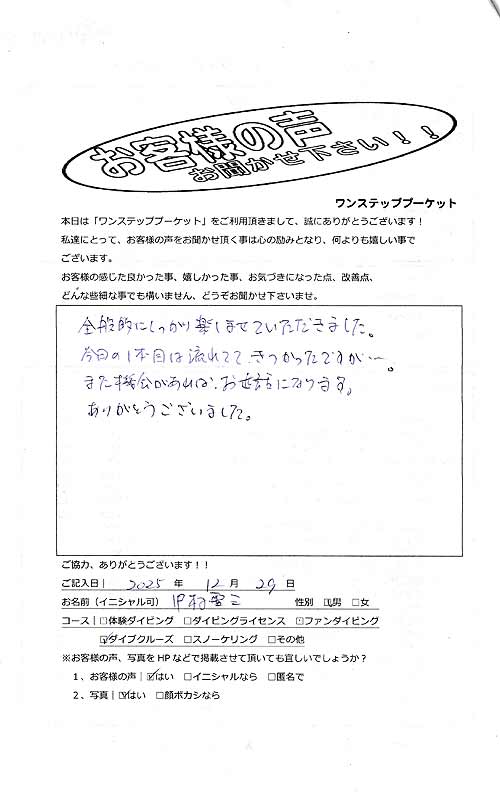 お客様の声
お聞かせ下さい！！
ワンステッププーケット
本日は「ワンステッププーケット」をご利用頂きまして、誠にありがとうございます！
私達にとって、お客様の声をお聞かせ頂く事は心の励みとなり、何よりも嬉しい事で
ございます。
お客様の感じた良かった事、嬉しかった事、お気づきになった点、改善点、
どんな些細な事でも構いません、どうぞお聞かせ下さいませ。
全般的にしっかり楽しませていただきました。
今日の1本目は流れてて きつかったですが…。
また機会があれば、お世話になります。
ありがとうございました。
ご協力、ありがとうございます！！
ご記入日| 2025 年 12 月 29 日
お名前（イニシャル可） 村雪三 性別 ☑男 □女
コース|□体験ダイビング □ダイビングライセンス □ファンダイビング
☑ダイブクルーズ □スノーケリング □その他
※お客様の声、写真をHPなどで掲載させて頂いても宜しいでしょうか？
１、お客様の声|☑はい □イニシャルなら □匿名で
２、写真|☑はい □顔ボカシなら